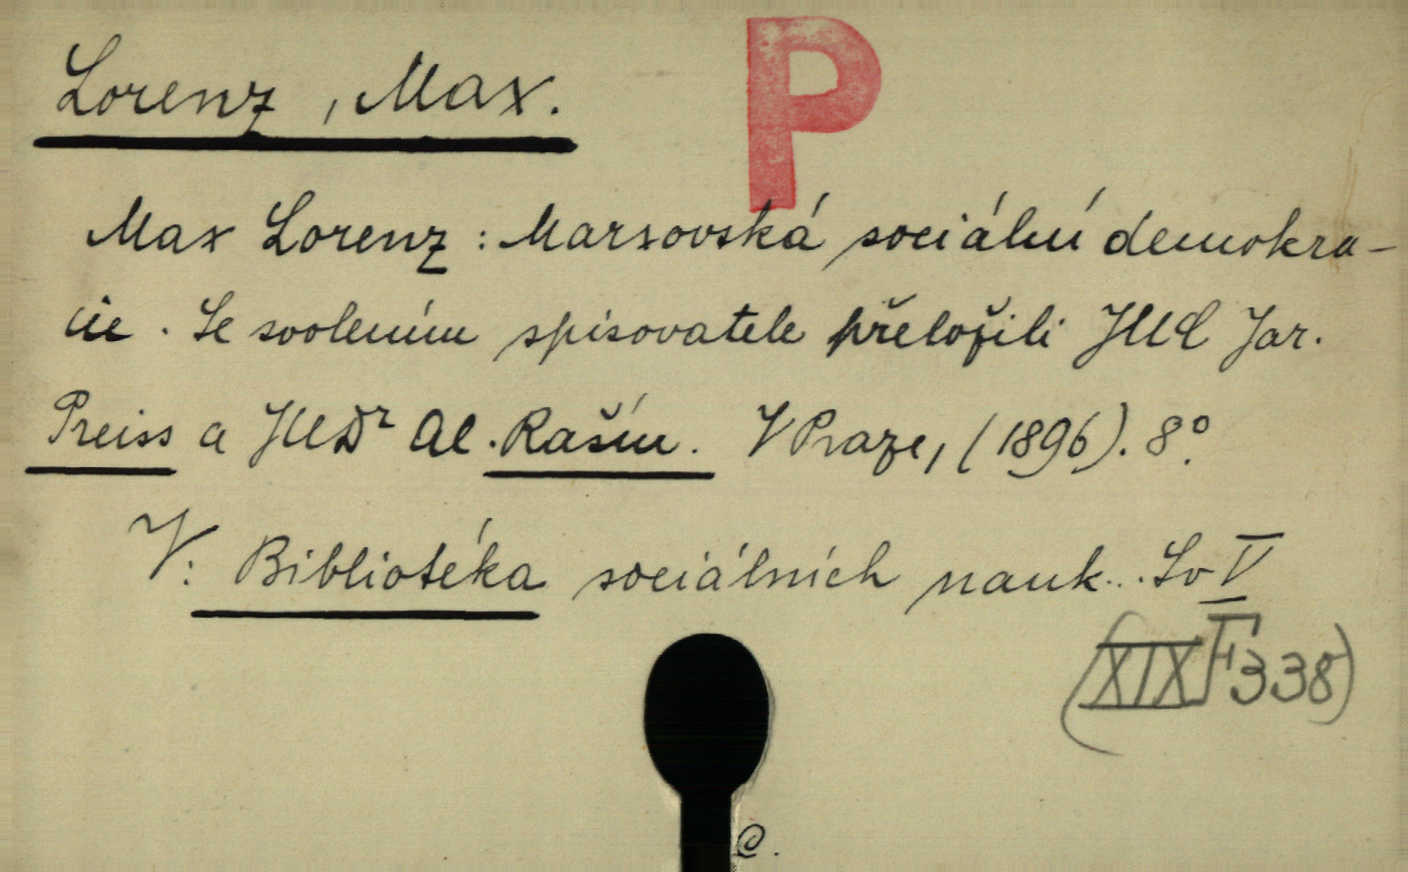 P
Lorenz, Max.
Max Lorenz: Marxovská sociální demokra-
cie. Se svolením spisovatele přeložili JUC Jar.
Preiss a JUDr Al. Rašín. V Praze, (1896). 8°.
V: Bibliotéka sociálních nauk... Sv V
(XIX F 338)